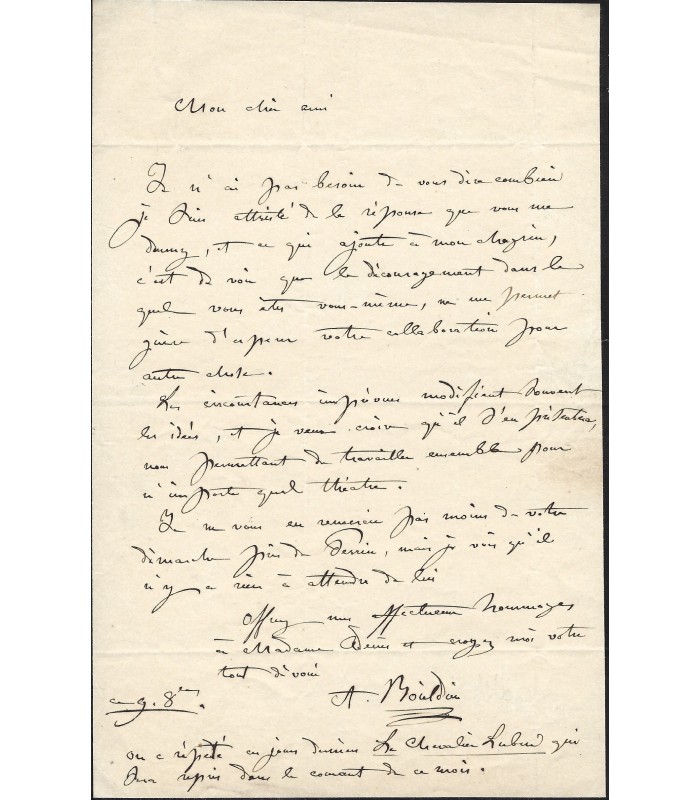 Mon cher ami
Je n'ai pas besoin de vous dire combien
je suis attristé de la réponse que vous me
donnez, et ce qui ajoute à mon chagrin,
c'est de voir que le découragement dans le
quel vous êtes vous-même, ne me permet
guère d'espérer votre collaboration pour
autre chose.
Les circonstances imprévues modifient souvent
les idées, et je veux croire qu'il s'en présentera,
nous permettant de travailler ensemble pour
n'importe quel théatre.
Je ne vous en remercie pas moins de votre
démarche près de Perrin, mais je vois qu'il
n'y a rien à attendre de lui
Offrez mes affectueux hommages
à Madame et croyez moi votre
tout dévoué
A. Boïeldieu
ce 9. 8bre.
on a répété ces jours derniers Le Chevalier Lubin qui
sera repris dans le courant de ce mois.